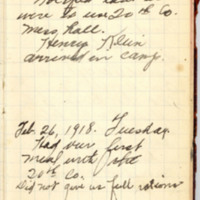 were to use 20th Co.
Mess Hall.
Henry Klein
arrived in camp.
Feb. 26, 1918. Tuesday.
Had our first
meal with the
20th Co.
Did not give us full rations